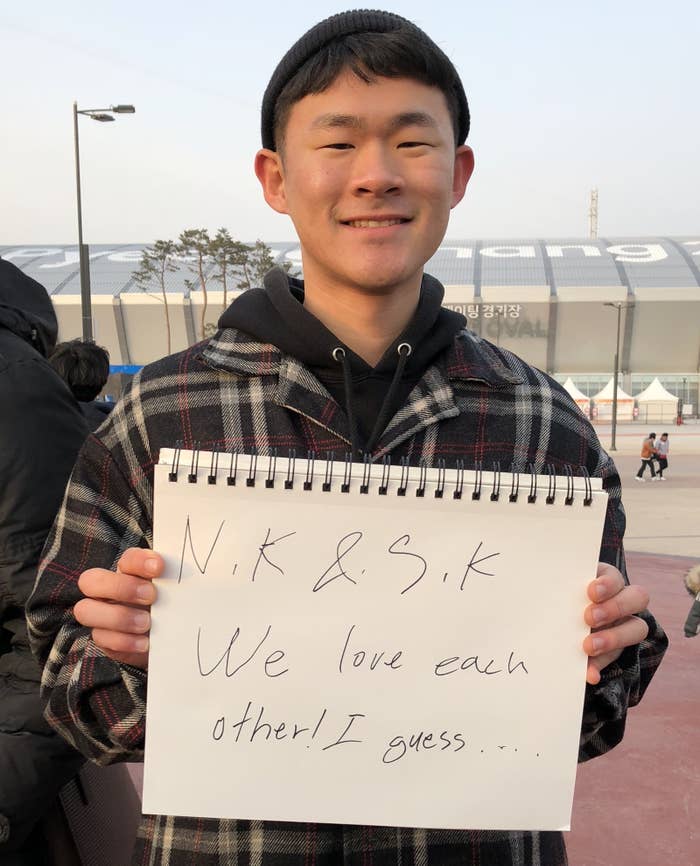 팅 경기장
OVAL
N.K & S.K
We love each
other! I guess.....